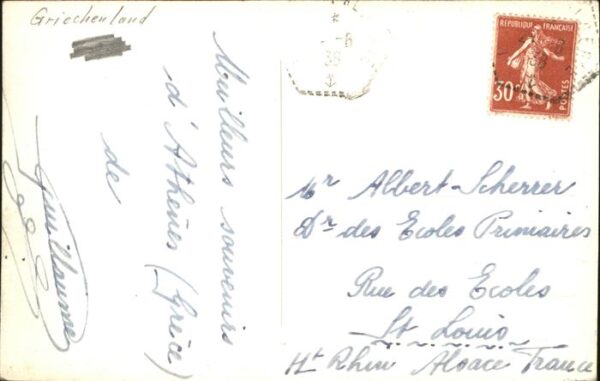 Griechenland
Meilleurs souvenirs
d'Athènes (Grèce)
de
Guillaume
-6
38
RÉPUBLIQUE FRANÇAISE
30c
POSTES
38
Mr Albert Scherrer
Dr des Ecoles Primaires
Rue des Ecoles
St Louis
Ht Rhin Alsace France